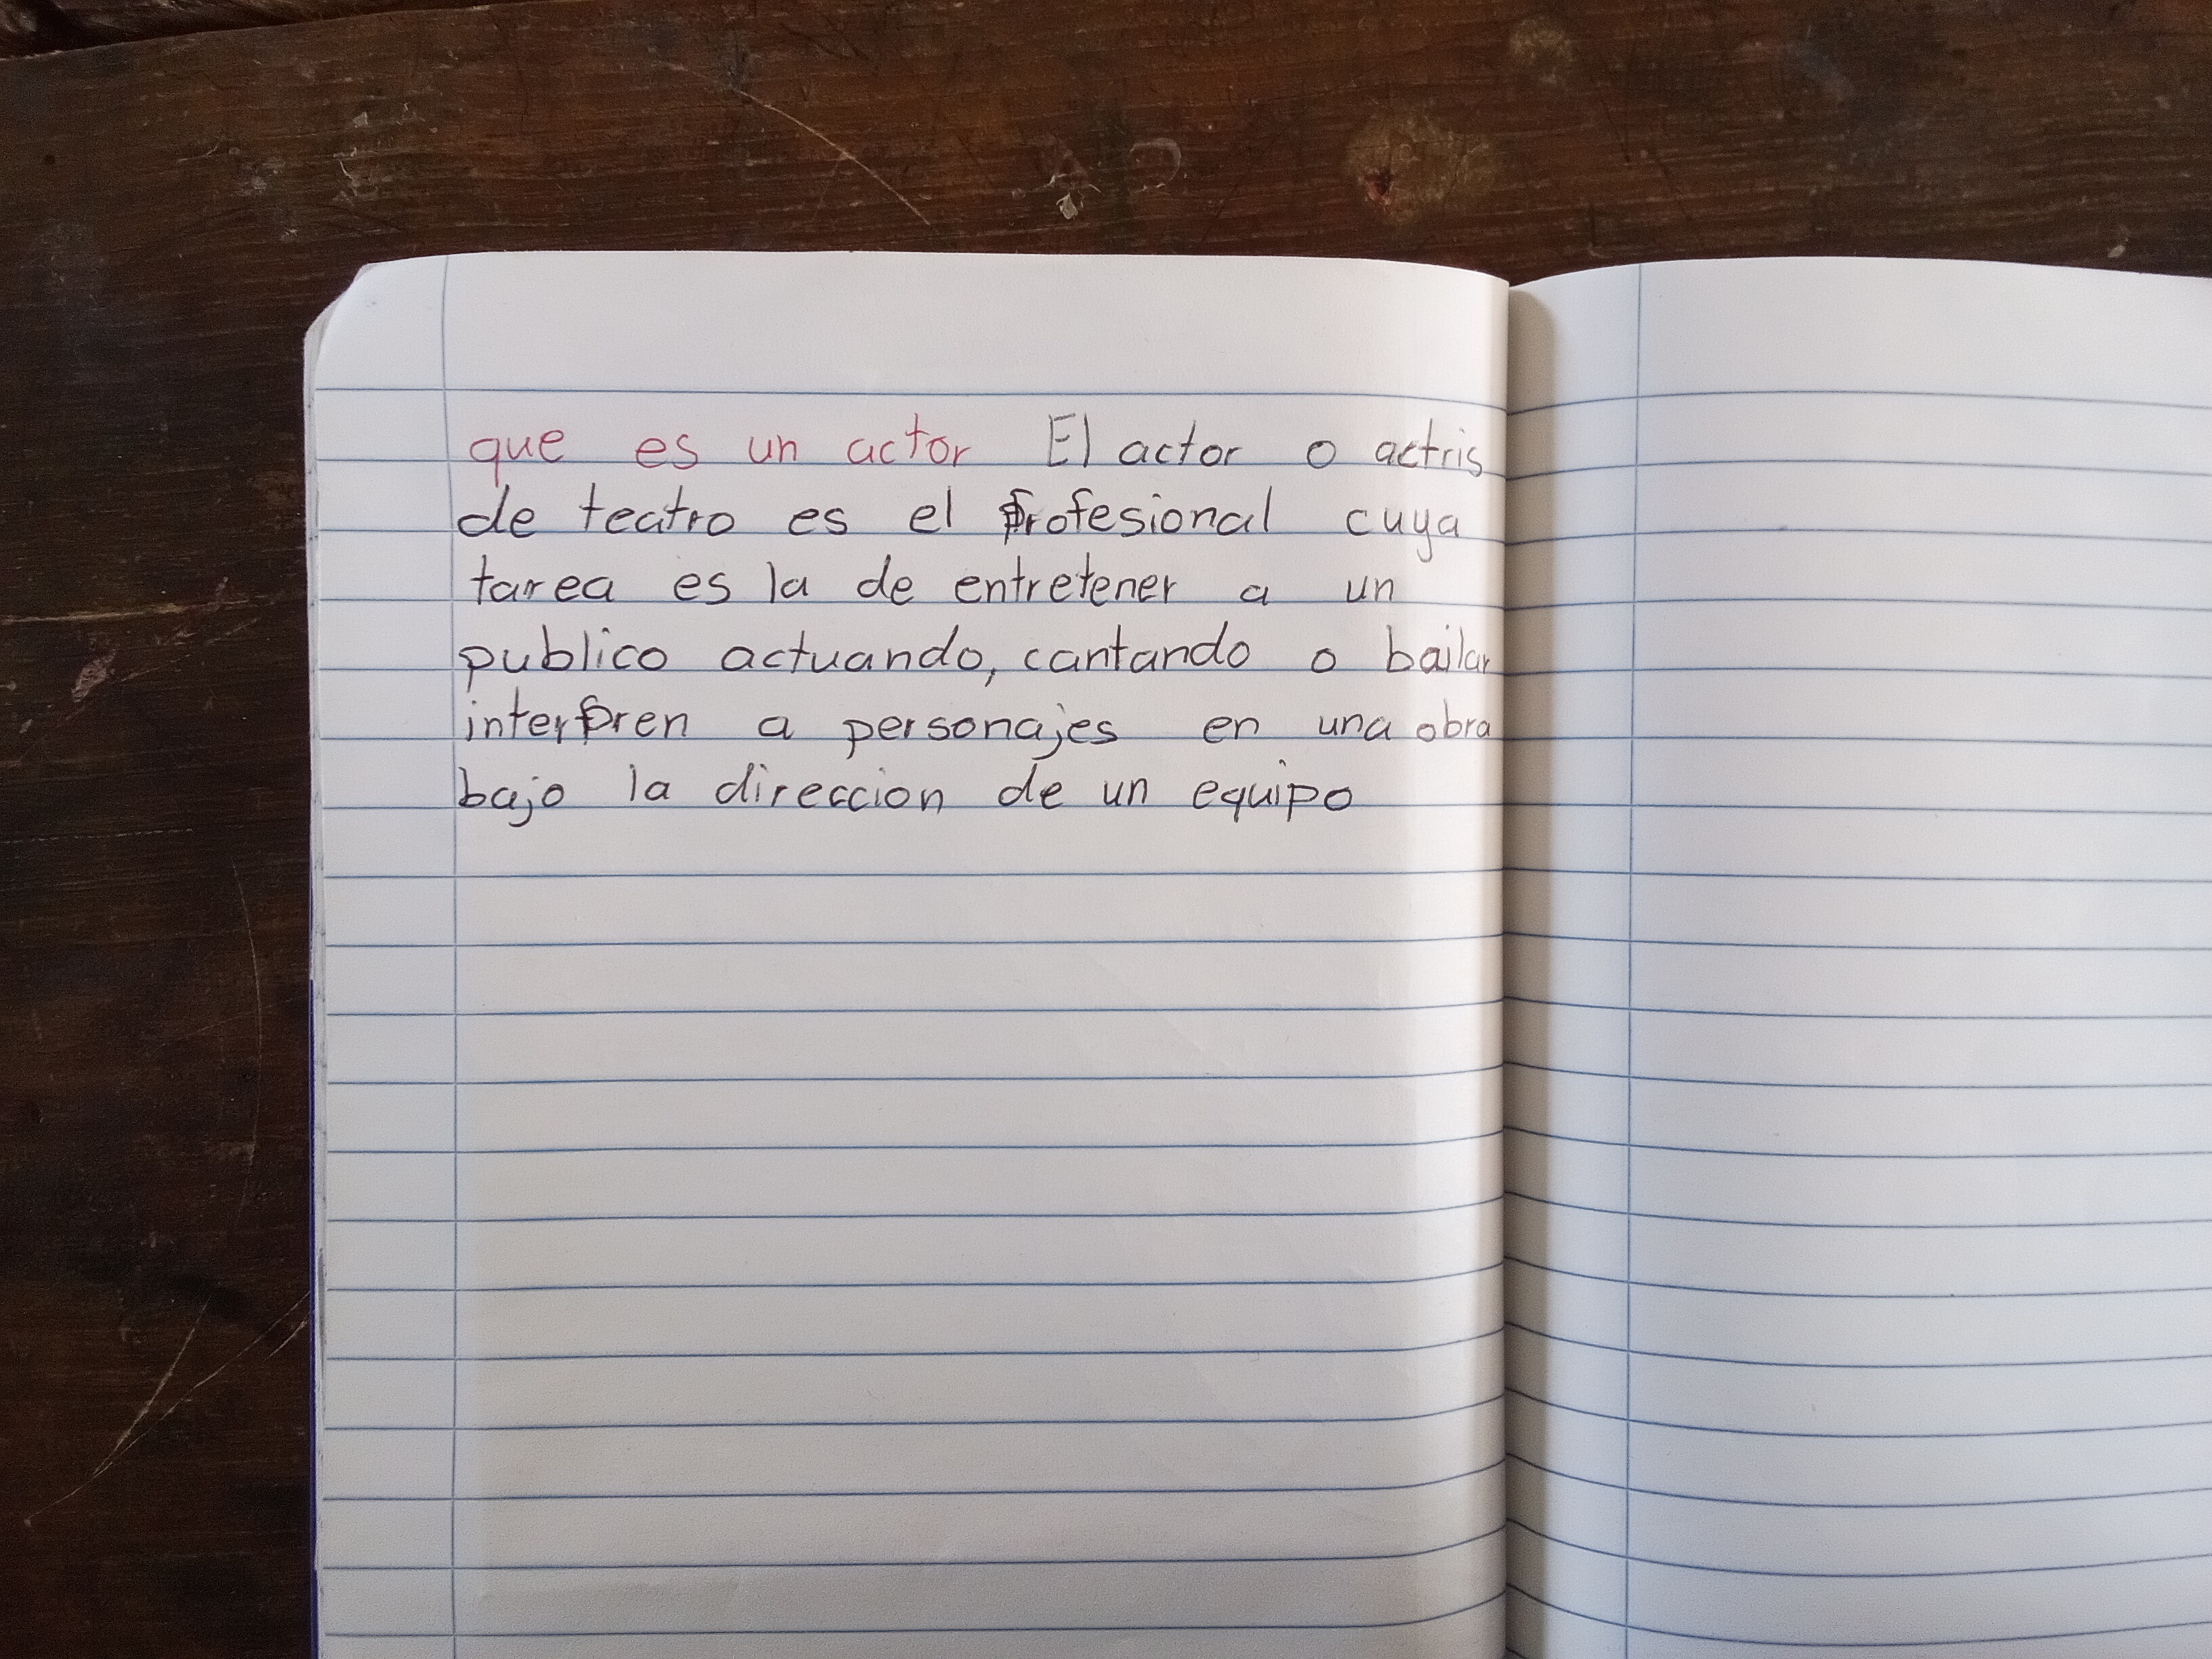 que es un actor El actor o actris
de teatro es el profesional cuya
tarea es la de entretener a un
publico actuando, cantando o bailar
interpren a personajes en una obra
bajo la direccion de un equipo